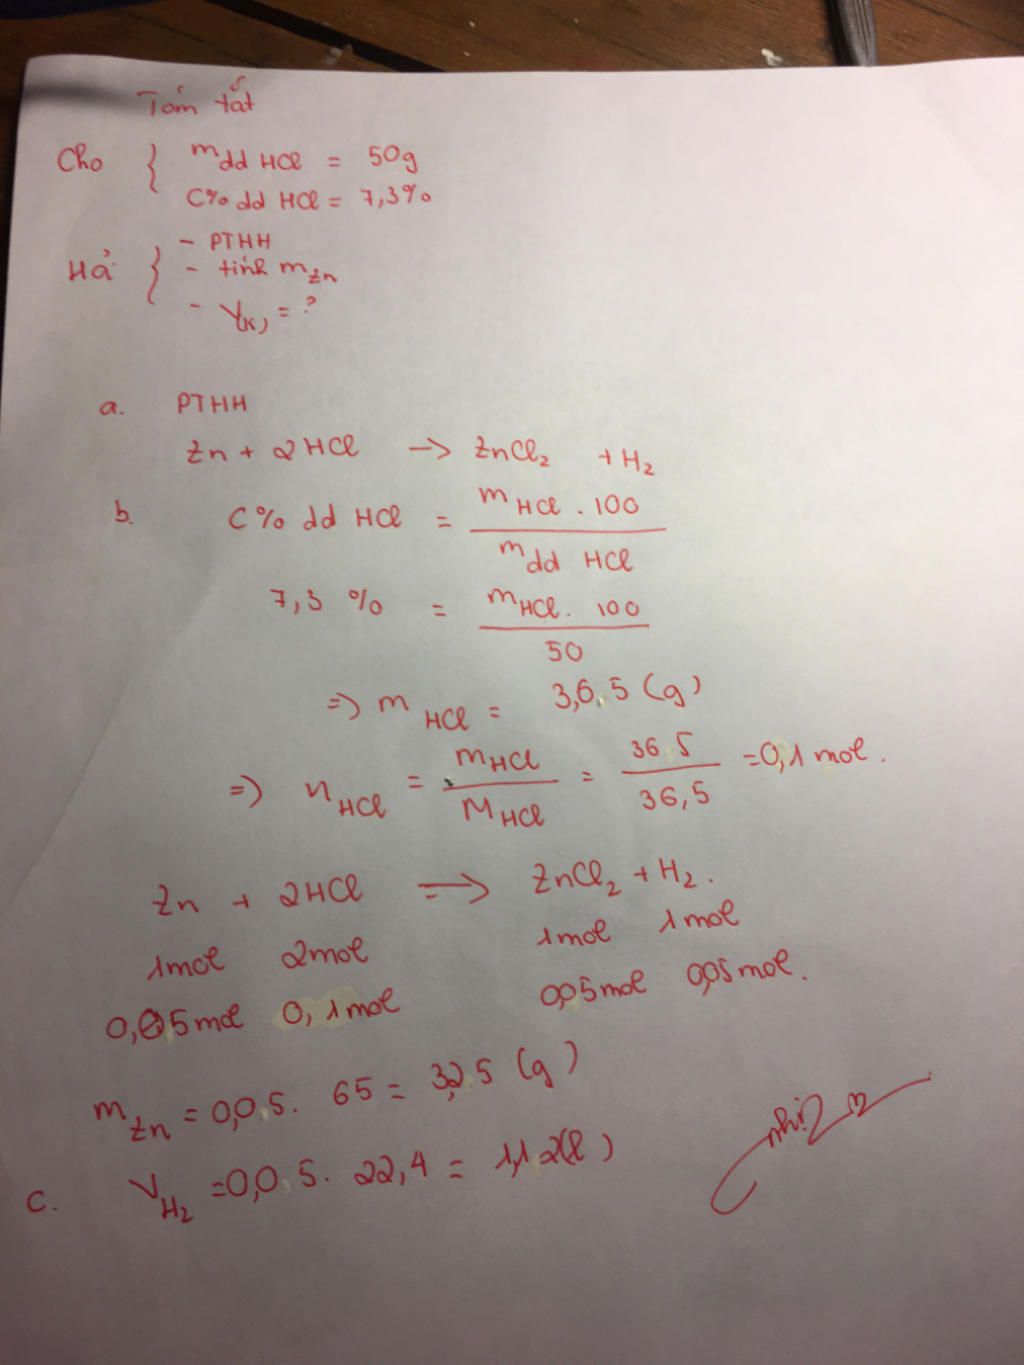 Tóm tắt
Cho { m dd HCl = 50g
C% dd HCl = 7,3%
Hỏ { - PTHH
- tính m Zn
- V(K) = ?
a. PTHH
Zn + 2HCl -> ZnCl2 + H2
b. C% dd HCl = m HCl . 100 / m dd HCl
7,3 % = m HCl . 100 / 50
=> m HCl = 3,6,5 (g)
=> n HCl = m HCl / M HCl = 36 5 / 36,5 = 0,1 mol.
Zn + 2HCl -> ZnCl2 + H2.
1mol 2mol 1mol 1mol
0,05mol 0,1mol 0,05mol 0,05mol.
m Zn = 0,0 5. 65 = 3,2 5 (g)
c. V H2 = 0,0 5. 22,4 = 1,12(l)